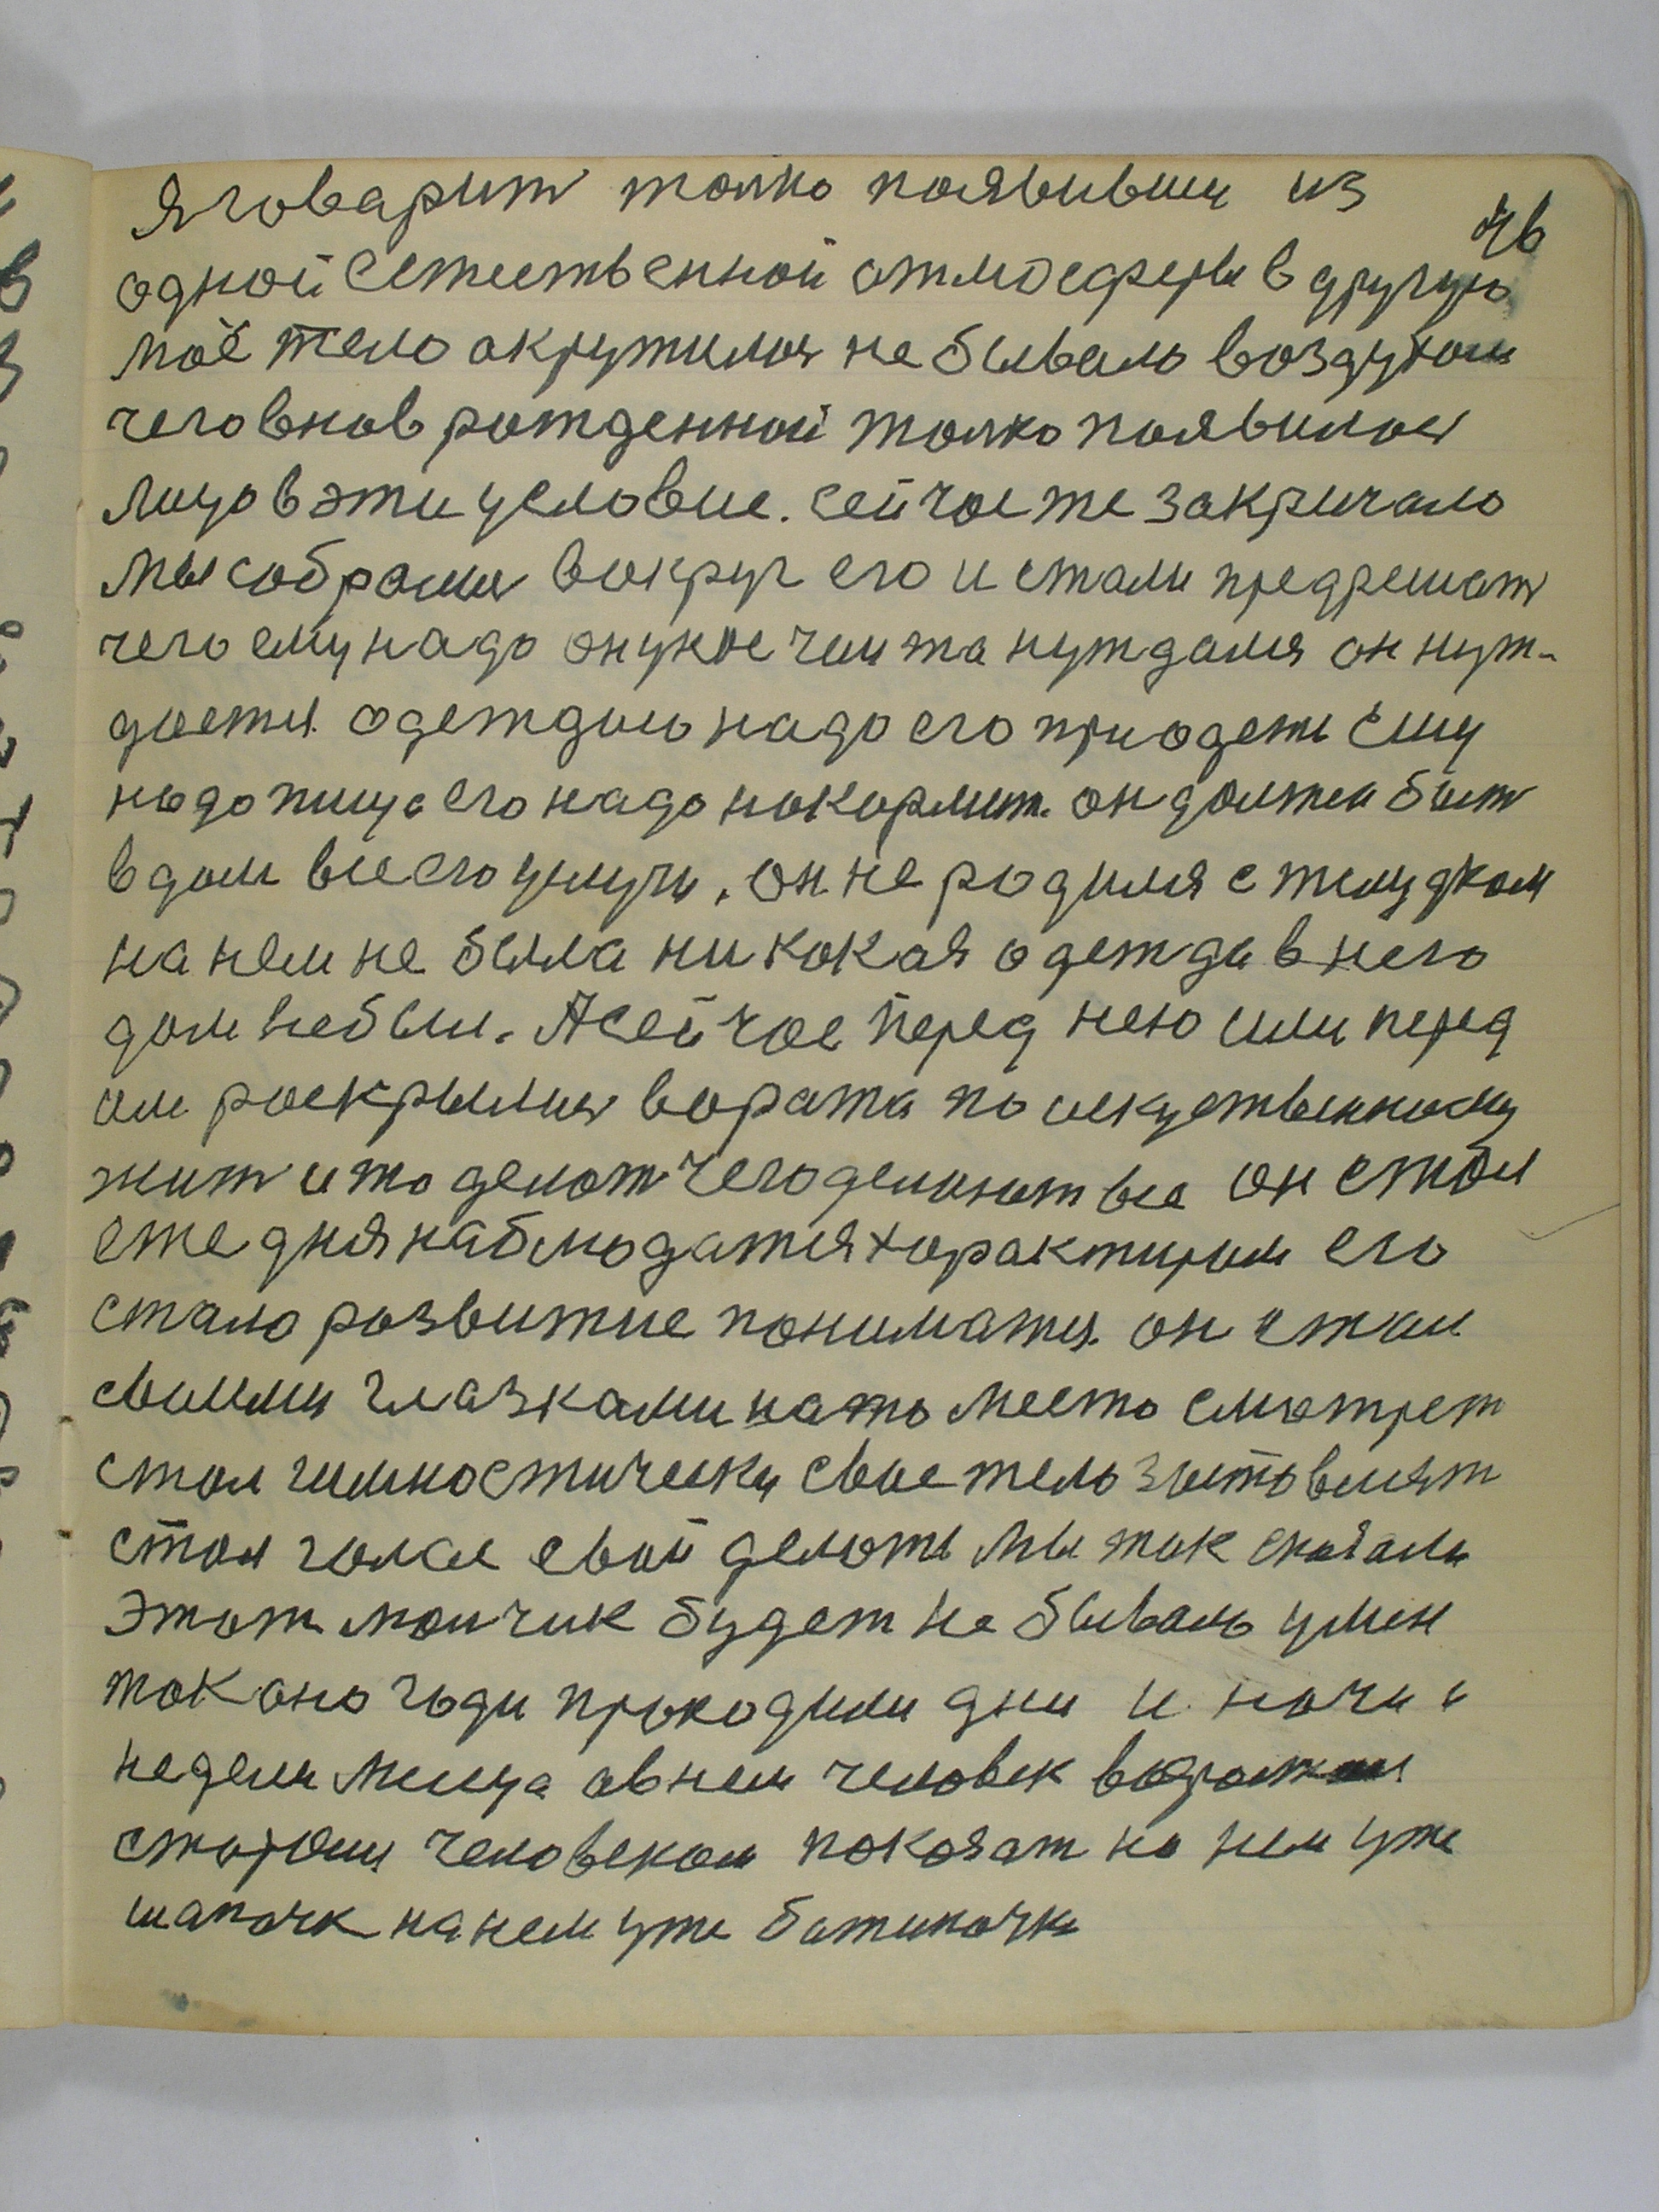 я говарит толко паявивши из
46
одной естественной отмосферы в другую
маё тело окружилось не бывало воздухом
чего внов рожденной толко паявилось
лицо в эти условие. сейчас же закричало
мы собрались вокруг его и стали предрешат
чего ему надо он у нас чем та нуждался он нуж-
дается. одеждою надо его приодеть ему
надо пища его надо покормит. он должен быт
в дом внего улучи. он не родился с желудком
на нем не была никокая одежда в него
дом не был. А сейчас перед нею или перед
им раскрылись ворота по искуственному
жит и то делат чего делают все он стал
еже дня наблюдатся характиром его
стало розвитие пониматся. он стал
своими глазками на то место смотрет
стал гимностически свое тело заставлят
стал голас свой делоть мы так сказали
этот мальчик будет не бываль умен
так оно годи проходили дни и ночи и
недели месица а в нем человек возрастал
старым человеком показат на нем уже
шапочк на нем уже батиночки